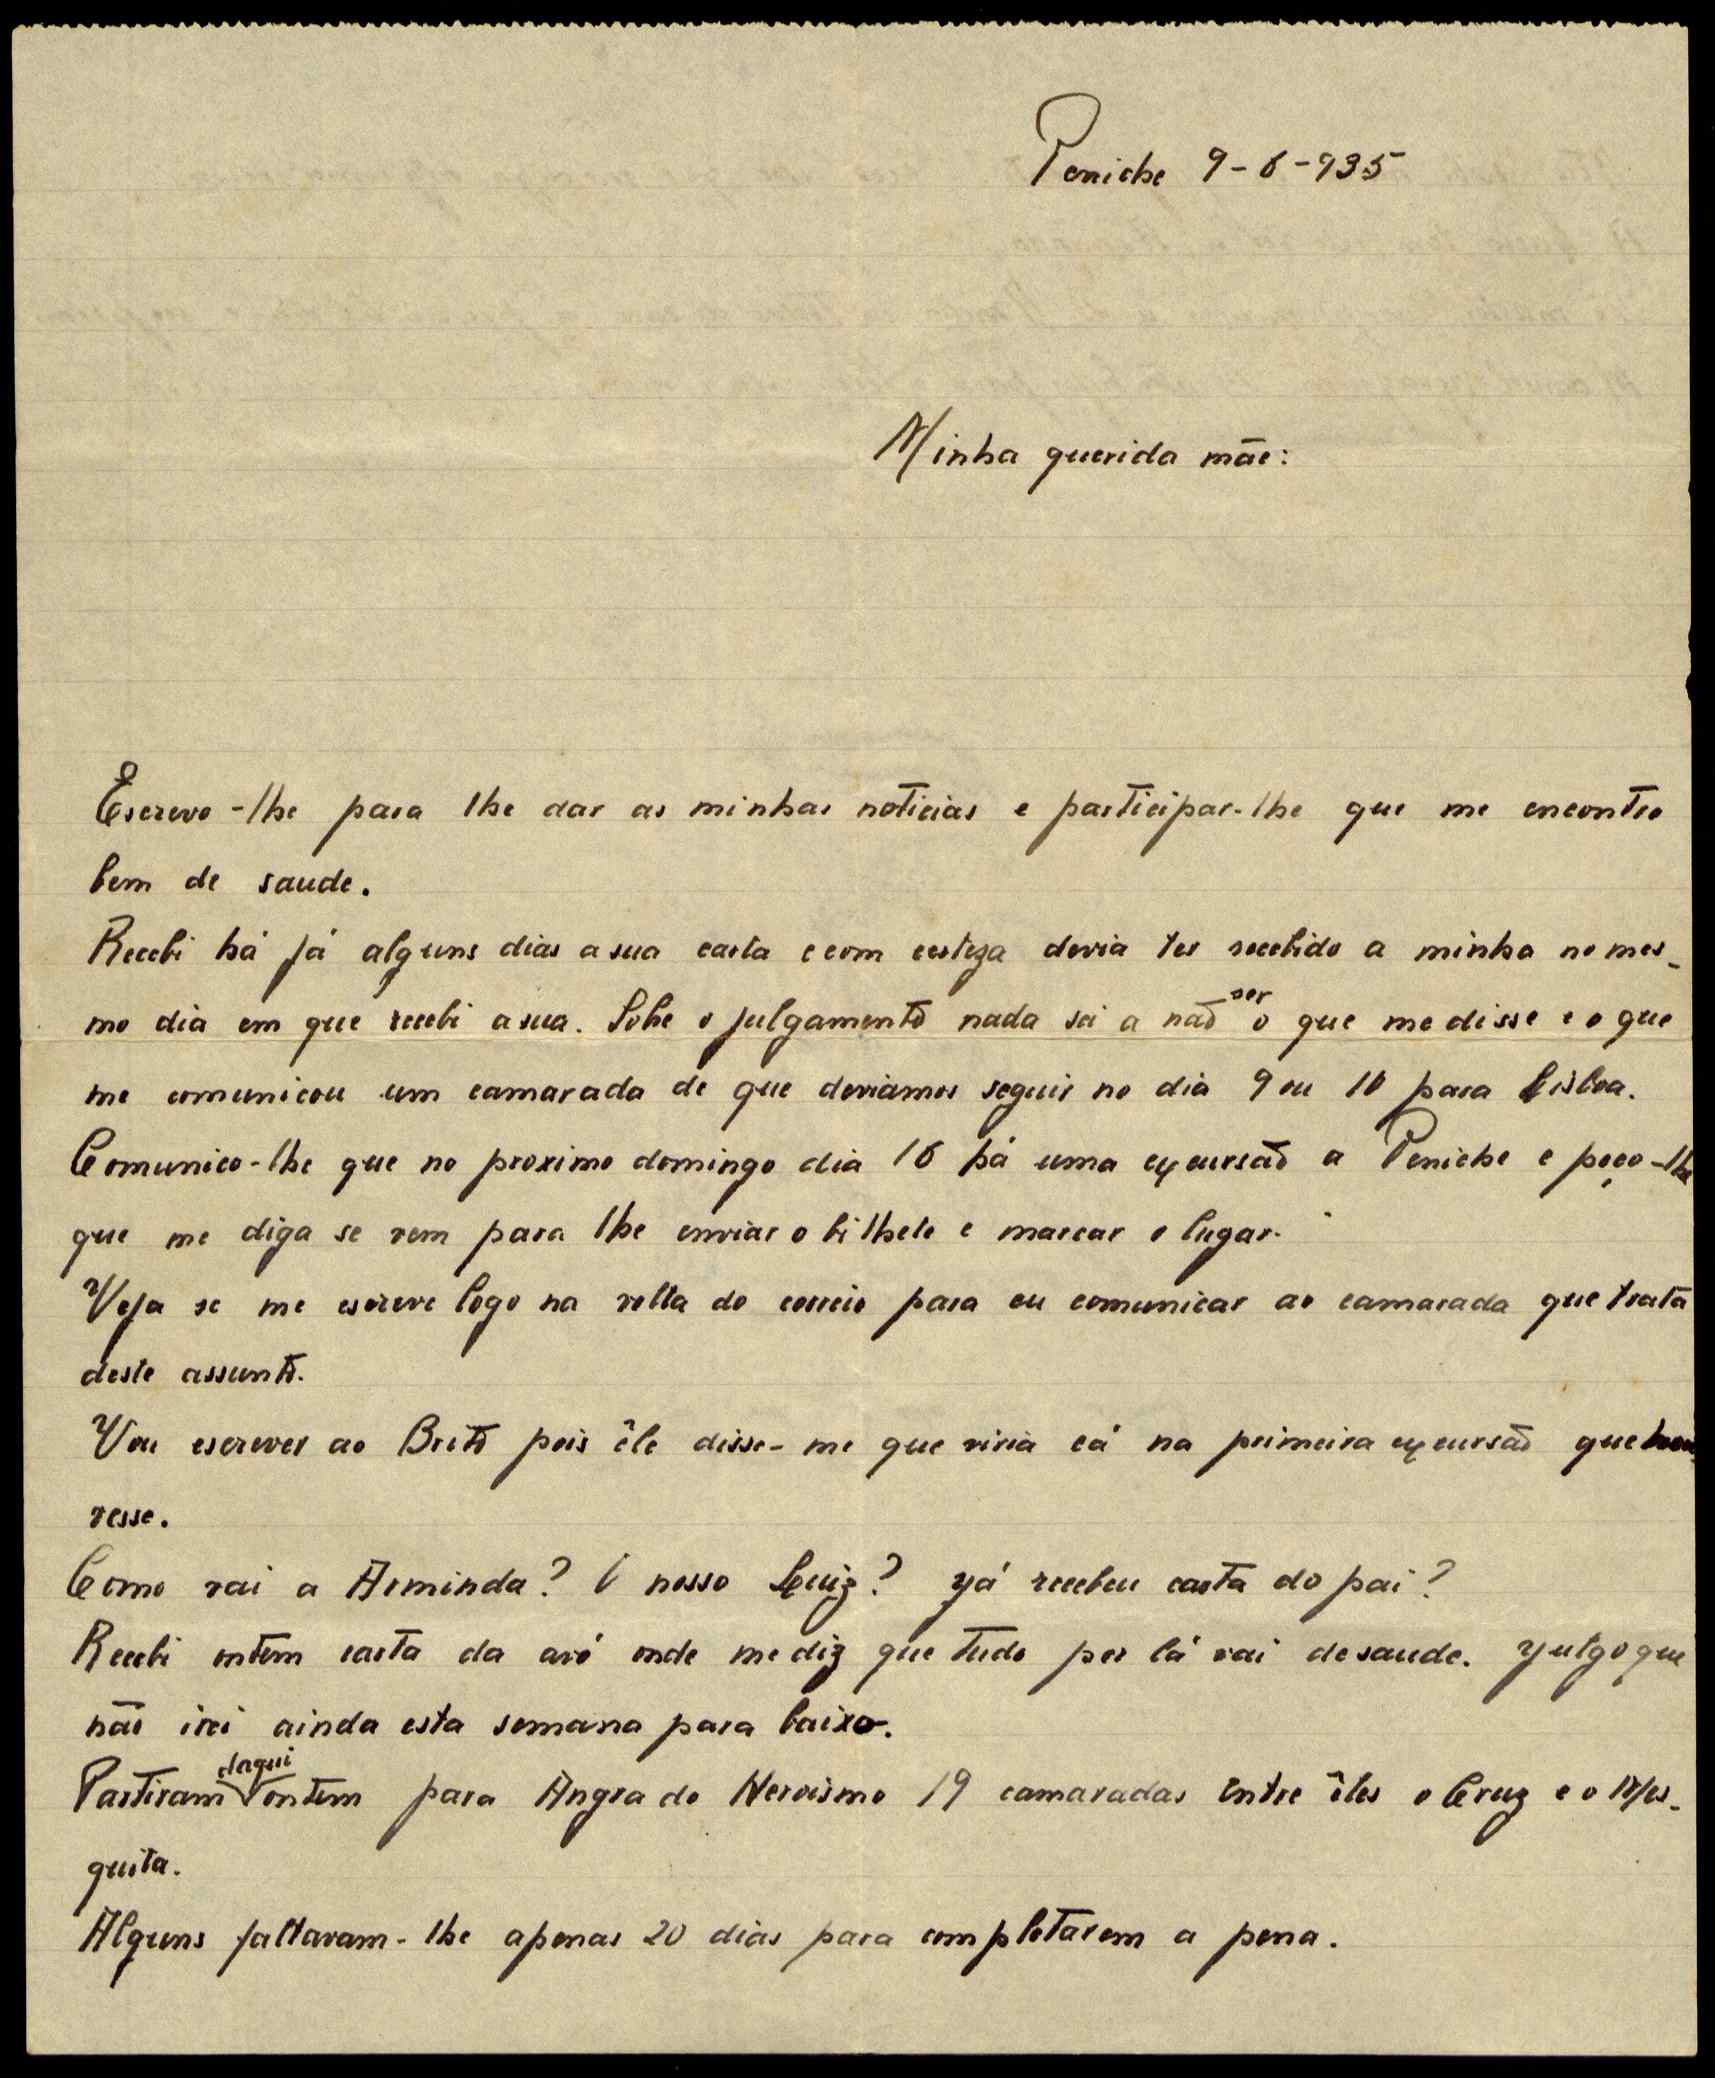 Peniche 9-6-935
Minha querida mãe:
Escrevo-lhe para lhe dar as minhas noticias e participar-lhe que me encontro
bem de saude.
Recebi há já alguns dias a sua carta e com certeza devia ter recebido a minha no mes-
mo dia em que recebi a sua. Sobre o julgamento nada sei a não ser o que me disse e o que
me comunicou um camarada de que deviamos seguir no dia 9 ou 10 para Lisboa.
Comunico-lhe que no proximo domingo dia 16 há uma excursão a Peniche e peço-lhe
que me diga se vem para lhe enviar o bilhete e marcar o lugar.
Veja se me escreve logo na volta do correio para eu comunicar ao camarada que trata
deste assunto.
Vou escrever ao Brito pois êle disse-me que viria cá na primeira excursão que hou-
vesse.
Como vai a Arminda? O nosso Luiz? Já recebeu carta do pai?
Recebi ontem carta da avó onde me diz que tudo por lá vai de saude. Julgo que
não irei ainda esta semana para baixo.
Partiram daqui ontem para Angra do Heroismo 19 camaradas entre êles o Cruz e o Mes-
quita.
Alguns faltavam-lhe apenas 20 dias para completarem a pena.